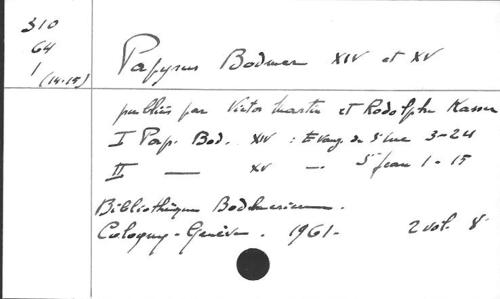 310
64
1 (14-15)
Papyrus Bodmer XIV et XV
publiés par Victor Martin et Rodolphe Kasser
I Pap. Bod. XIV : Evang. de St Luc 3-24
II — XV — St Jean 1-15
Bibliothèque Bodmeriana.
Cologny-Genève. 1961- 2 vol. 8°